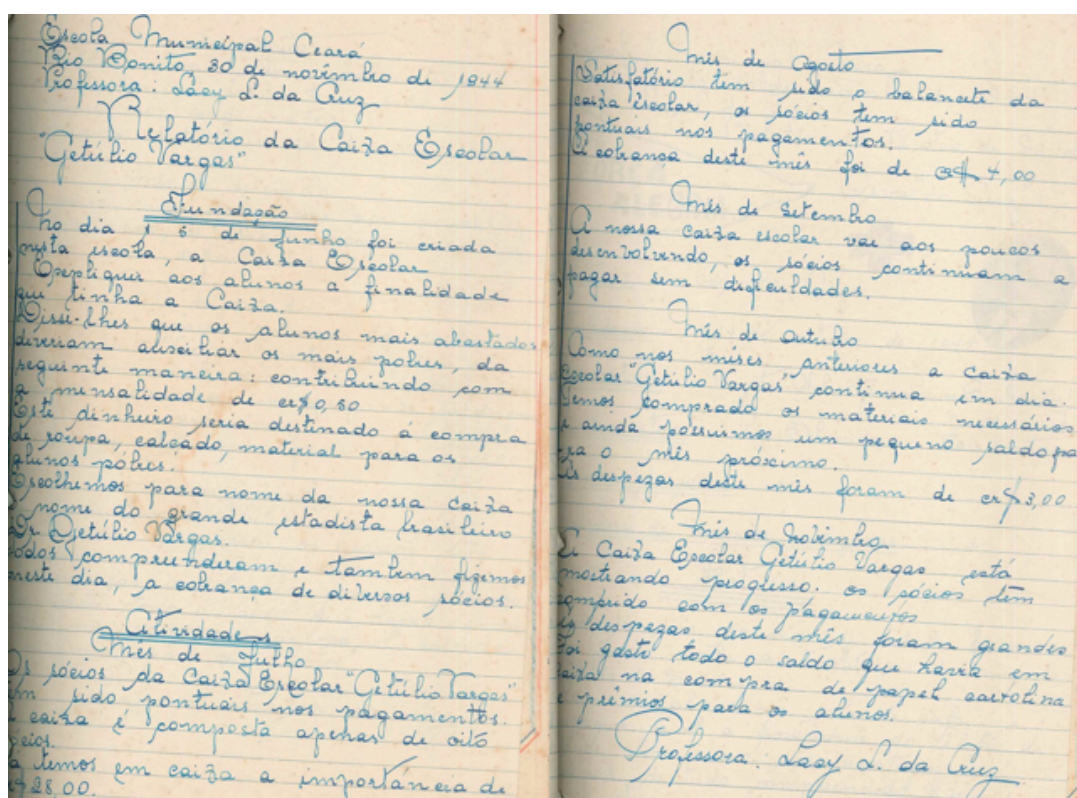 Escola Municipal Ceará
Rio Bonito, 30 de novembro de 1944
Professora: Lacy L. da Cruz
Relatório da Caixa Escolar
"Getúlio Vargas"
Fundação
No dia 15 de Junho foi criada
nesta escola, a Caixa Escolar
Expliquei aos alunos a finalidade
que tinha a Caixa.
Disse-lhes que os alunos mais abastados
deveriam auxiliar os mais pobres, da
seguinte maneira: contribuindo com
a mensalidade de cr$ 0,50
Este dinheiro seria destinado á compra
de roupa, calçado, material para os
alunos póbres.
Escolhemos para nome da nossa caixa
o nome do grande estadista brasileiro
Dr Getúlio Vargas.
Todos compreenderam e tambem fizemos
neste dia, a cobrança de diversos sócios.
Atividades
Mês de Julho
Os sócios da Caixa Escolar "Getúlio Vargas"
têm sido pontuais nos pagamentos.
A caixa é composta apenas de oito
sócios.
Já temos em caixa a importância de
cr$ 28,00.
Mês de Agosto
Satisfatório tem sido o balancete da
caixa escolar, os sócios tem sido
pontuais nos pagamentos.
A cobrança deste mês foi de cr$ 4,00
Mês de Setembro
A nossa caixa escolar vae aos poucos
desenvolvendo, os sócios continuam a
pagar sem dificuldades.
Mês de Outubro
Como nos mêses anteriores a caixa
Escolar "Getúlio Vargas" continua em dia.
Temos comprado os materiais necessários
e ainda póssuimos um pequeno saldo pa
ra o mês próximo.
As despezas deste mês foram de cr$ 3,00
Mês de Novembro
A Caixa Escolar Getúlio Vargas está
mostrando progresso. os sócios têm
comprido com os pagamentos
As despezas deste mês foram grandes
Foi gasto todo o saldo que havia em
caixa na compra de papel cartolina
e prêmios para os alunos.
Professora: Lacy L. da Cruz